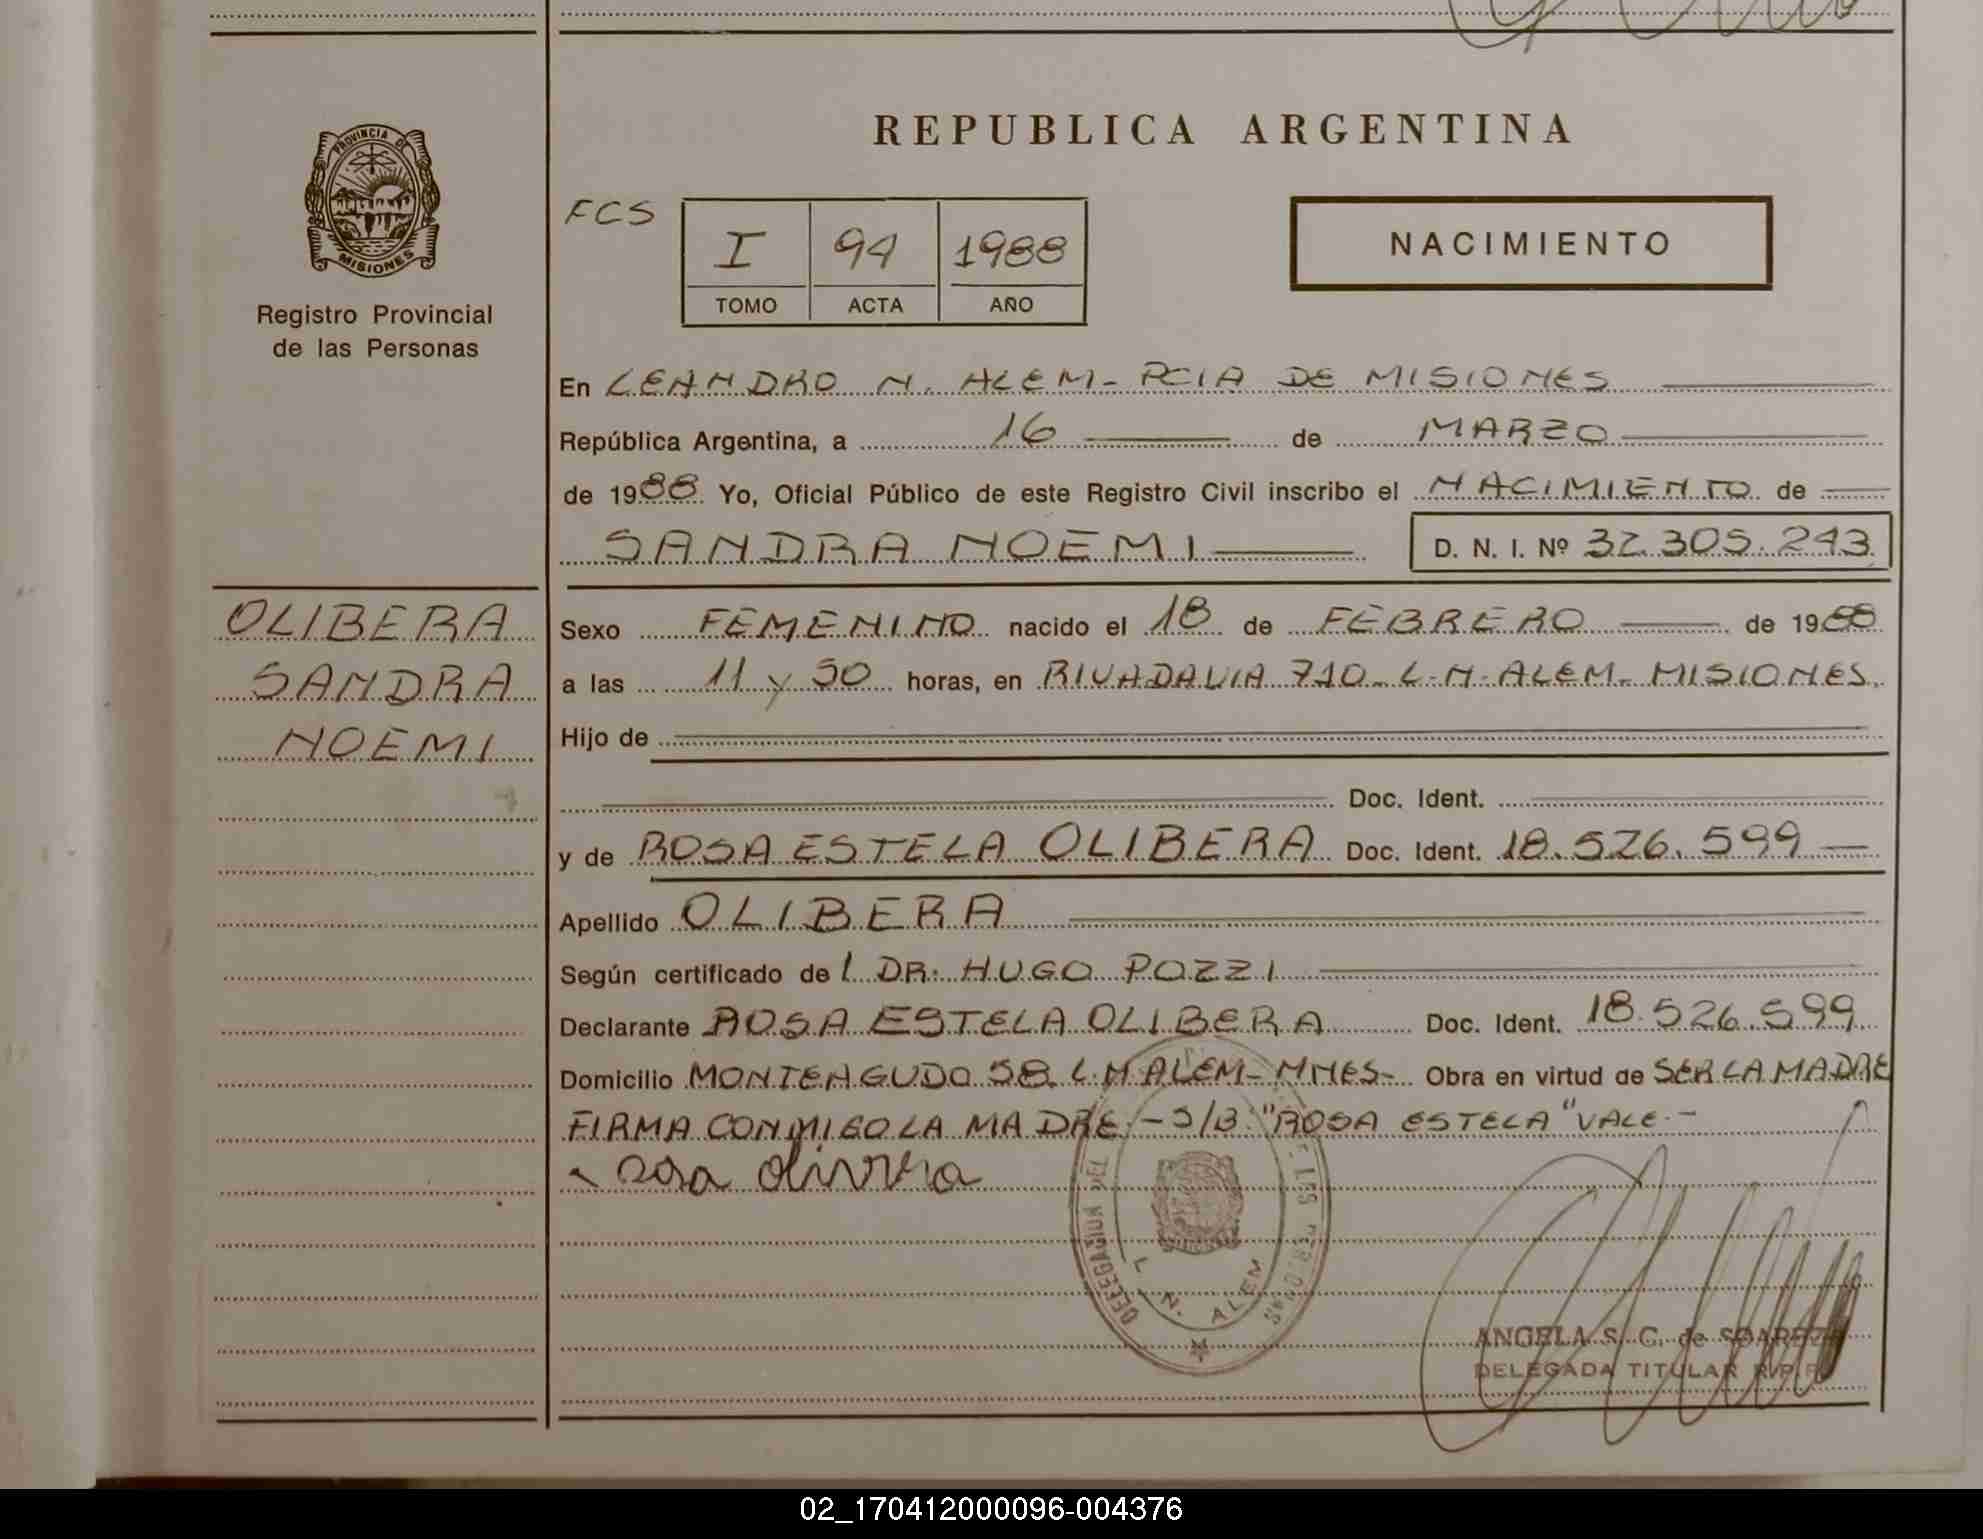 REPUBLICA ARGENTINA
PROVINCIA DE
MISIONES
Registro Provincial
de las Personas
FCS
I 94 1988
TOMO ACTA AÑO
NACIMIENTO
En LEANDRO N. ALEM - PCIA DE MISIONES
República Argentina, a 16 de MARZO
de 1988 Yo, Oficial Público de este Registro Civil inscribo el NACIMIENTO de
SANDRA NOEMI D. N. I. Nº 32.305.243
OLIBERA
SANDRA
NOEMI
Sexo FEMENINO nacido el 18 de FEBRERO de 1988
a las 11 y 50 horas, en RIVADAVIA 710 - L-N-ALEM - MISIONES
Hijo de
Doc. Ident.
y de ROSA ESTELA OLIBERA Doc. Ident. 18.526.599
Apellido OLIBERA
Según certificado de l DR. HUGO POZZI
Declarante ROSA ESTELA OLIBERA Doc. Ident. 18.526.599
Domicilio MONTEAGUDO 58 L N ALEM - MNES - Obra en virtud de SER LA MADRE
FIRMA CONMIGO LA MADRE. - S/B: "ROSA ESTELA" VALE. -
rosa olivera
DELEGACION DEL
DE LAS PERSONAS
L. N. ALEM
ANGELA S. C. de SOAREZ
DELEGADA TITULAR R.P.P.
02_170412000096-004376